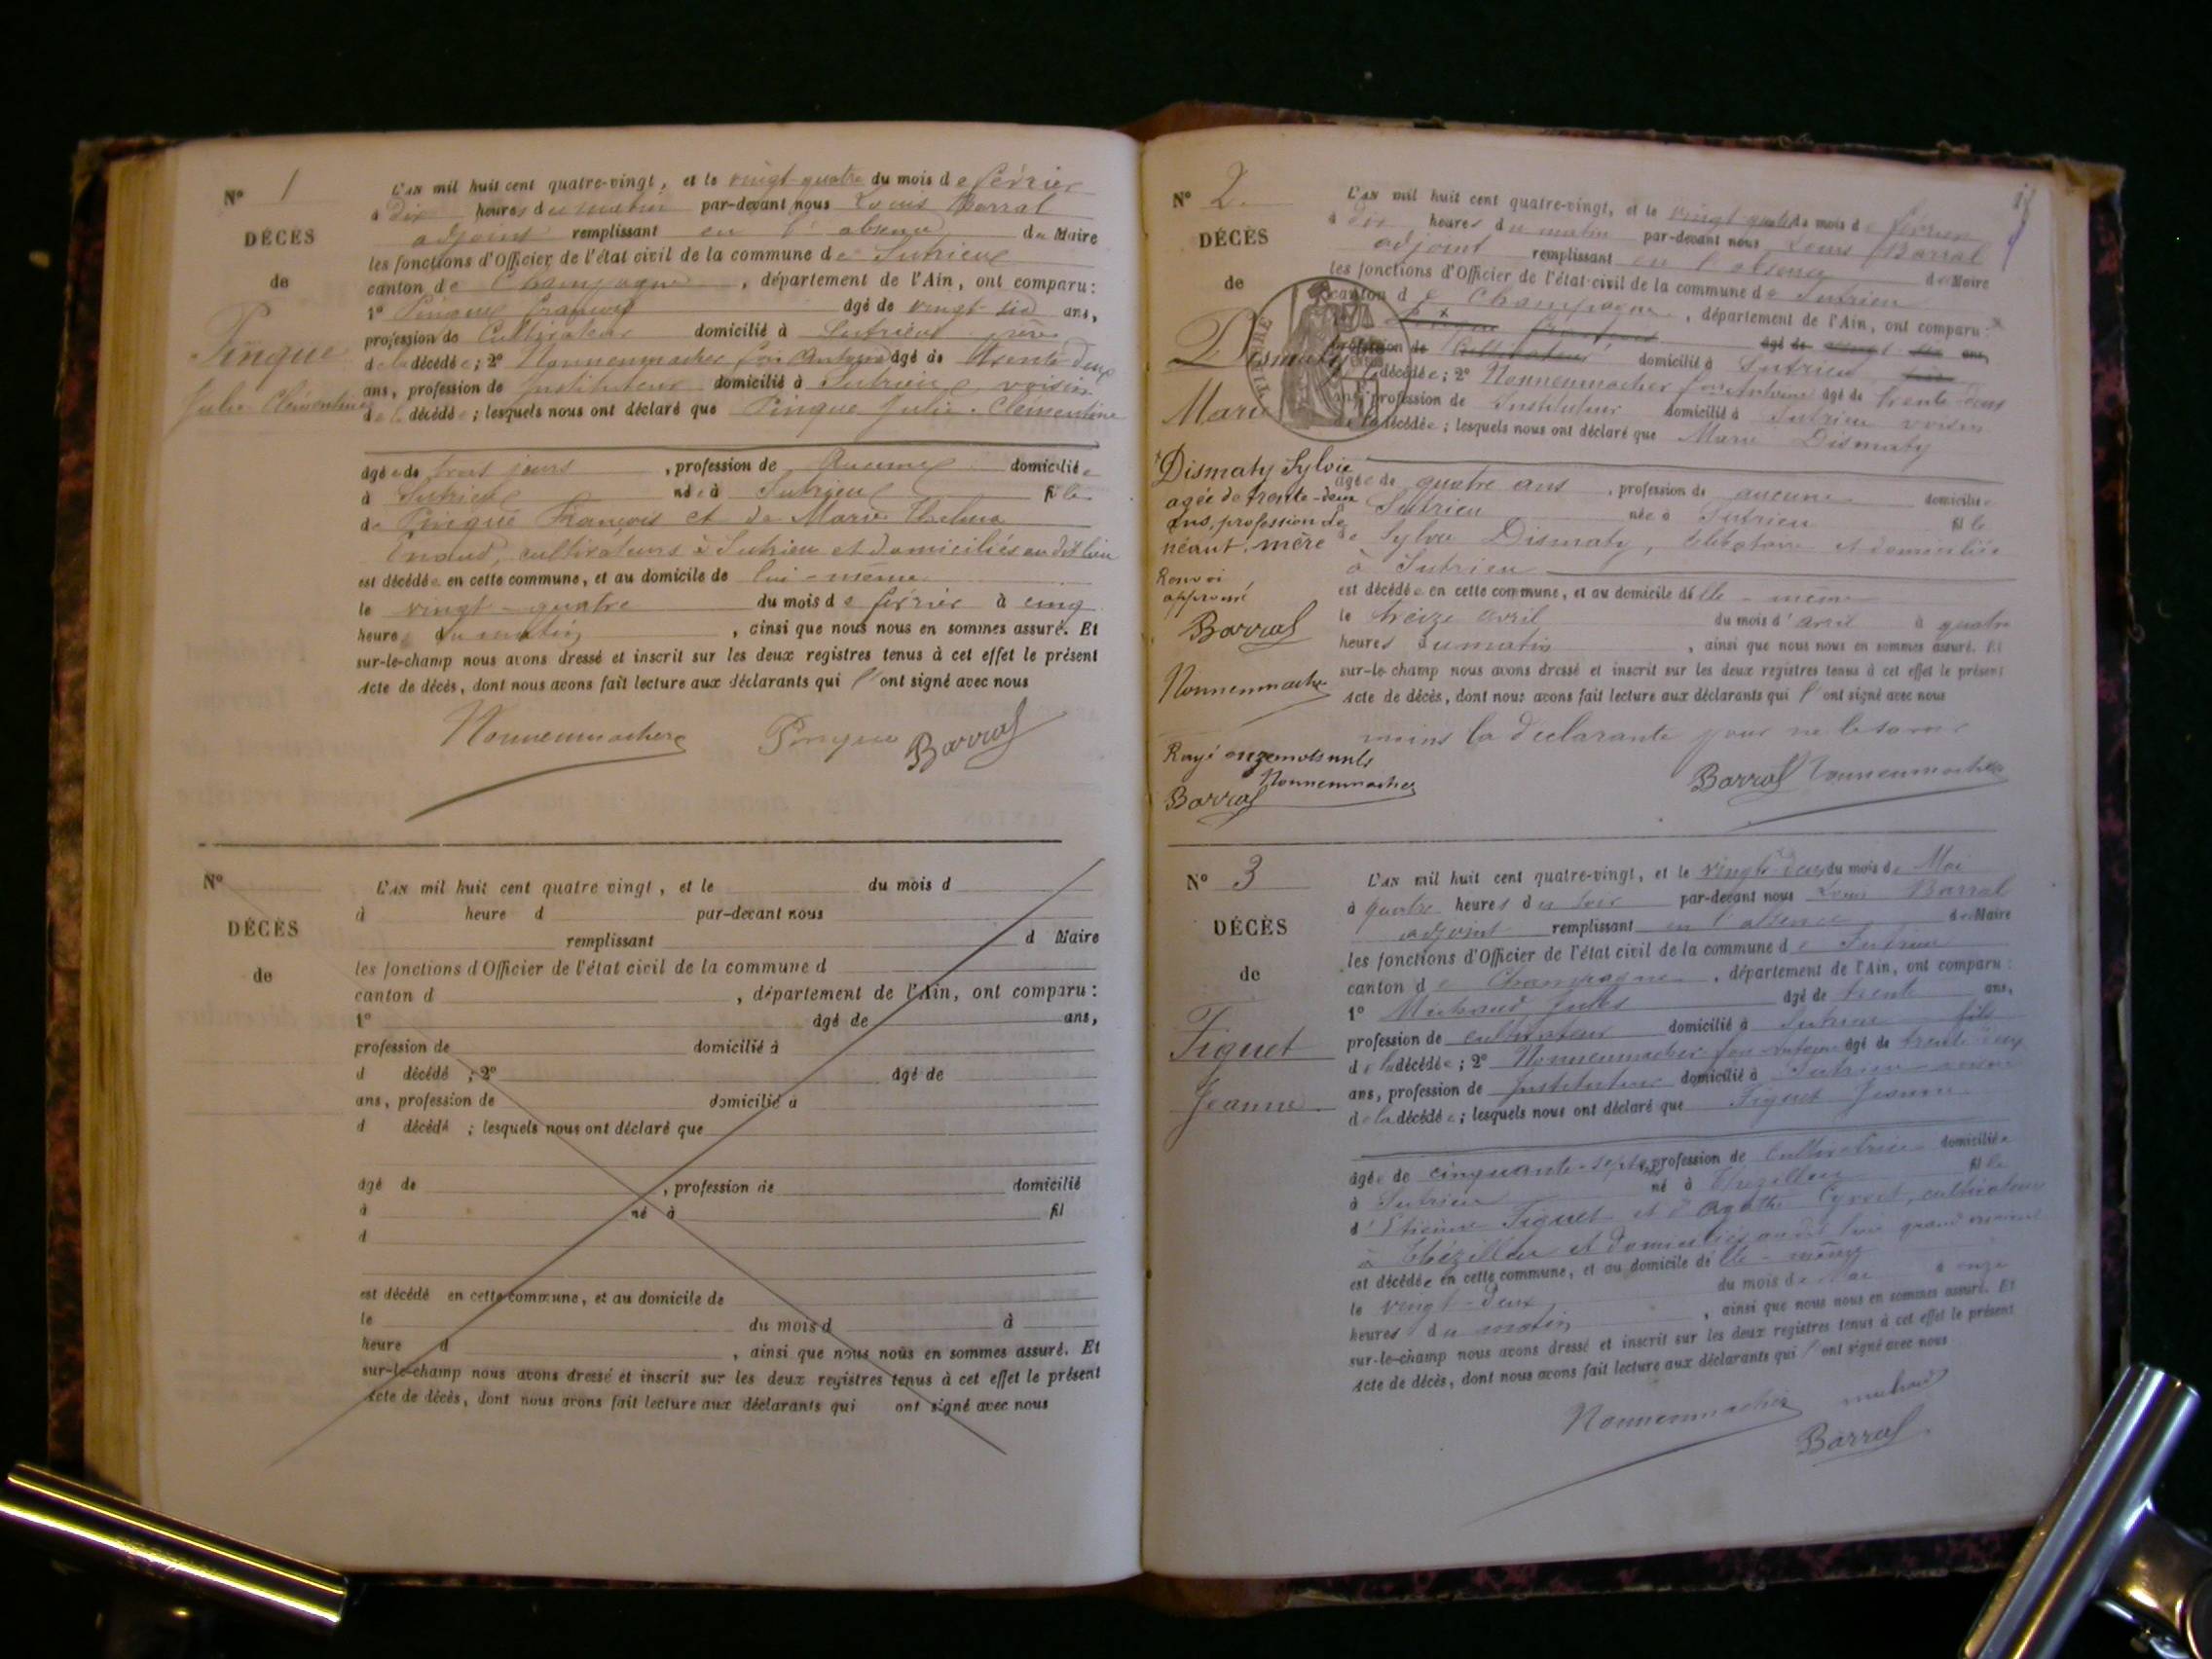 N° 1
DÉCÈS
de
Pinque
Julie Clémentine
L'AN mil huit cent quatre-vingt, et le vingt-quatre du mois de février
à dix heures du matin par-devant nous Louis Barral
adjoint remplissant en l'absence du Maire
les fonctions d'Officier de l'état civil de la commune de Sutrieu
canton de Champagne, département de l'Ain, ont comparu :
1° Pinque François âgé de vingt-six ans,
profession de Cultivateur domicilié à Sutrieu père
de la décédée ; 2° Nonnenmacher âgé de trente-deux
ans, profession de Instituteur domicilié à Sutrieu voisin
de la décédée ; lesquels nous ont déclaré que Pinque Julie-Clémentine
âgée de trois jours, profession de Aucune domiciliée
à Sutrieu née à Sutrieu fille
de Pinque François et de Marie
cultivateurs à Sutrieu et domiciliés au dit lieu
est décédée en cette commune, et au domicile de lui-même
le vingt-quatre du mois de février à cinq
heures du matin, ainsi que nous nous en sommes assuré. Et
sur-le-champ nous avons dressé et inscrit sur les deux registres tenus à cet effet le présent
Acte de décès, dont nous avons fait lecture aux déclarants qui l'ont signé avec nous
Nonnenmacher Pinque Barral
N°
DÉCÈS
de
L'AN mil huit cent quatre vingt, et le du mois d
à heure d par-devant nous
remplissant d Maire
les fonctions d'Officier de l'état civil de la commune d
canton d , département de l'Ain, ont comparu :
1° âgé de ans,
profession de domicilié à
d décédé ; 2° âgé de
ans, profession de domicilié à
d décédé ; lesquels nous ont déclaré que
âgé de , profession de domicilié
à né à fil
d
est décédé en cette commune, et au domicile de
le du mois d à
heure d , ainsi que nous nous en sommes assuré. Et
sur-le-champ nous avons dressé et inscrit sur les deux registres tenus à cet effet le présent
Acte de décès, dont nous avons fait lecture aux déclarants qui ont signé avec nous
N° 2
DÉCÈS
de
Dismaty
Marie
TIMBRE
L'AN mil huit cent quatre-vingt, et le vingt-quatre du mois de février
à dix heures du matin par-devant nous Louis Barral
adjoint remplissant en l'absence du Maire
les fonctions d'Officier de l'état-civil de la commune de Sutrieu
canton de Champagne, département de l'Ain, ont comparu :
Pinque François âgé de vingt-six ans,
profession de Cultivateur domicilié à Sutrieu
décédée ; 2° Nonnenmacher âgé de trente-deux
ans, profession de Instituteur domicilié à Sutrieu voisin
de la décédée ; lesquels nous ont déclaré que Marie Dismaty
âgée de quatre ans, profession de aucune domiciliée
Sutrieu née à Sutrieu fille
de Sylvie Dismaty, et domiciliée
à Sutrieu
est décédée en cette commune, et au domicile d'elle-même
le treize avril du mois d'avril à quatre
heures du matin, ainsi que nous nous en sommes assuré. Et
sur-le-champ nous avons dressé et inscrit sur les deux registres tenus à cet effet le présent
Acte de décès, dont nous avons fait lecture aux déclarants qui l'ont signé avec nous
moins la déclarante pour ne le savoir
Barral Nonnenmacher
Dismaty Sylvie
agée de trente-deux
ans, profession de
néant. mère
Renvoi
approuvé
Barral
Nonnenmacher
Rayé onze mots nuls
Nonnenmacher
Barral
N° 3
DÉCÈS
de
Figuet
Jeanne
L'AN mil huit cent quatre-vingt, et le vingt-deux du mois de Mai
à quatre heures du soir par-devant nous Louis Barral
adjoint remplissant en l'absence du Maire
les fonctions d'Officier de l'état civil de la commune de Sutrieu
canton de Champagne, département de l'Ain, ont comparu :
1° Michaud Jules âgé de trente ans,
profession de cultivateur domicilié à Sutrieu fils
de la décédée ; 2° Nonnenmacher âgé de trente-deux
ans, profession de Instituteur domicilié à Sutrieu voisin
de la décédée ; lesquels nous ont déclaré que Figuet Jeanne
âgée de cinquante-sept ans, profession de cultivatrice domiciliée
à Sutrieu né à Thézillieu fille
d'Etienne Figuet et d'Agathe cultivateurs
à Thézillieu et domiciliés au dit lieu quand vivaient
est décédée en cette commune, et au domicile d'elle-même
le vingt-deux du mois de Mai à onze
heures du matin, ainsi que nous nous en sommes assuré. Et
sur-le-champ nous avons dressé et inscrit sur les deux registres tenus à cet effet le présent
Acte de décès, dont nous avons fait lecture aux déclarants qui l'ont signé avec nous
Nonnenmacher michaud
Barral